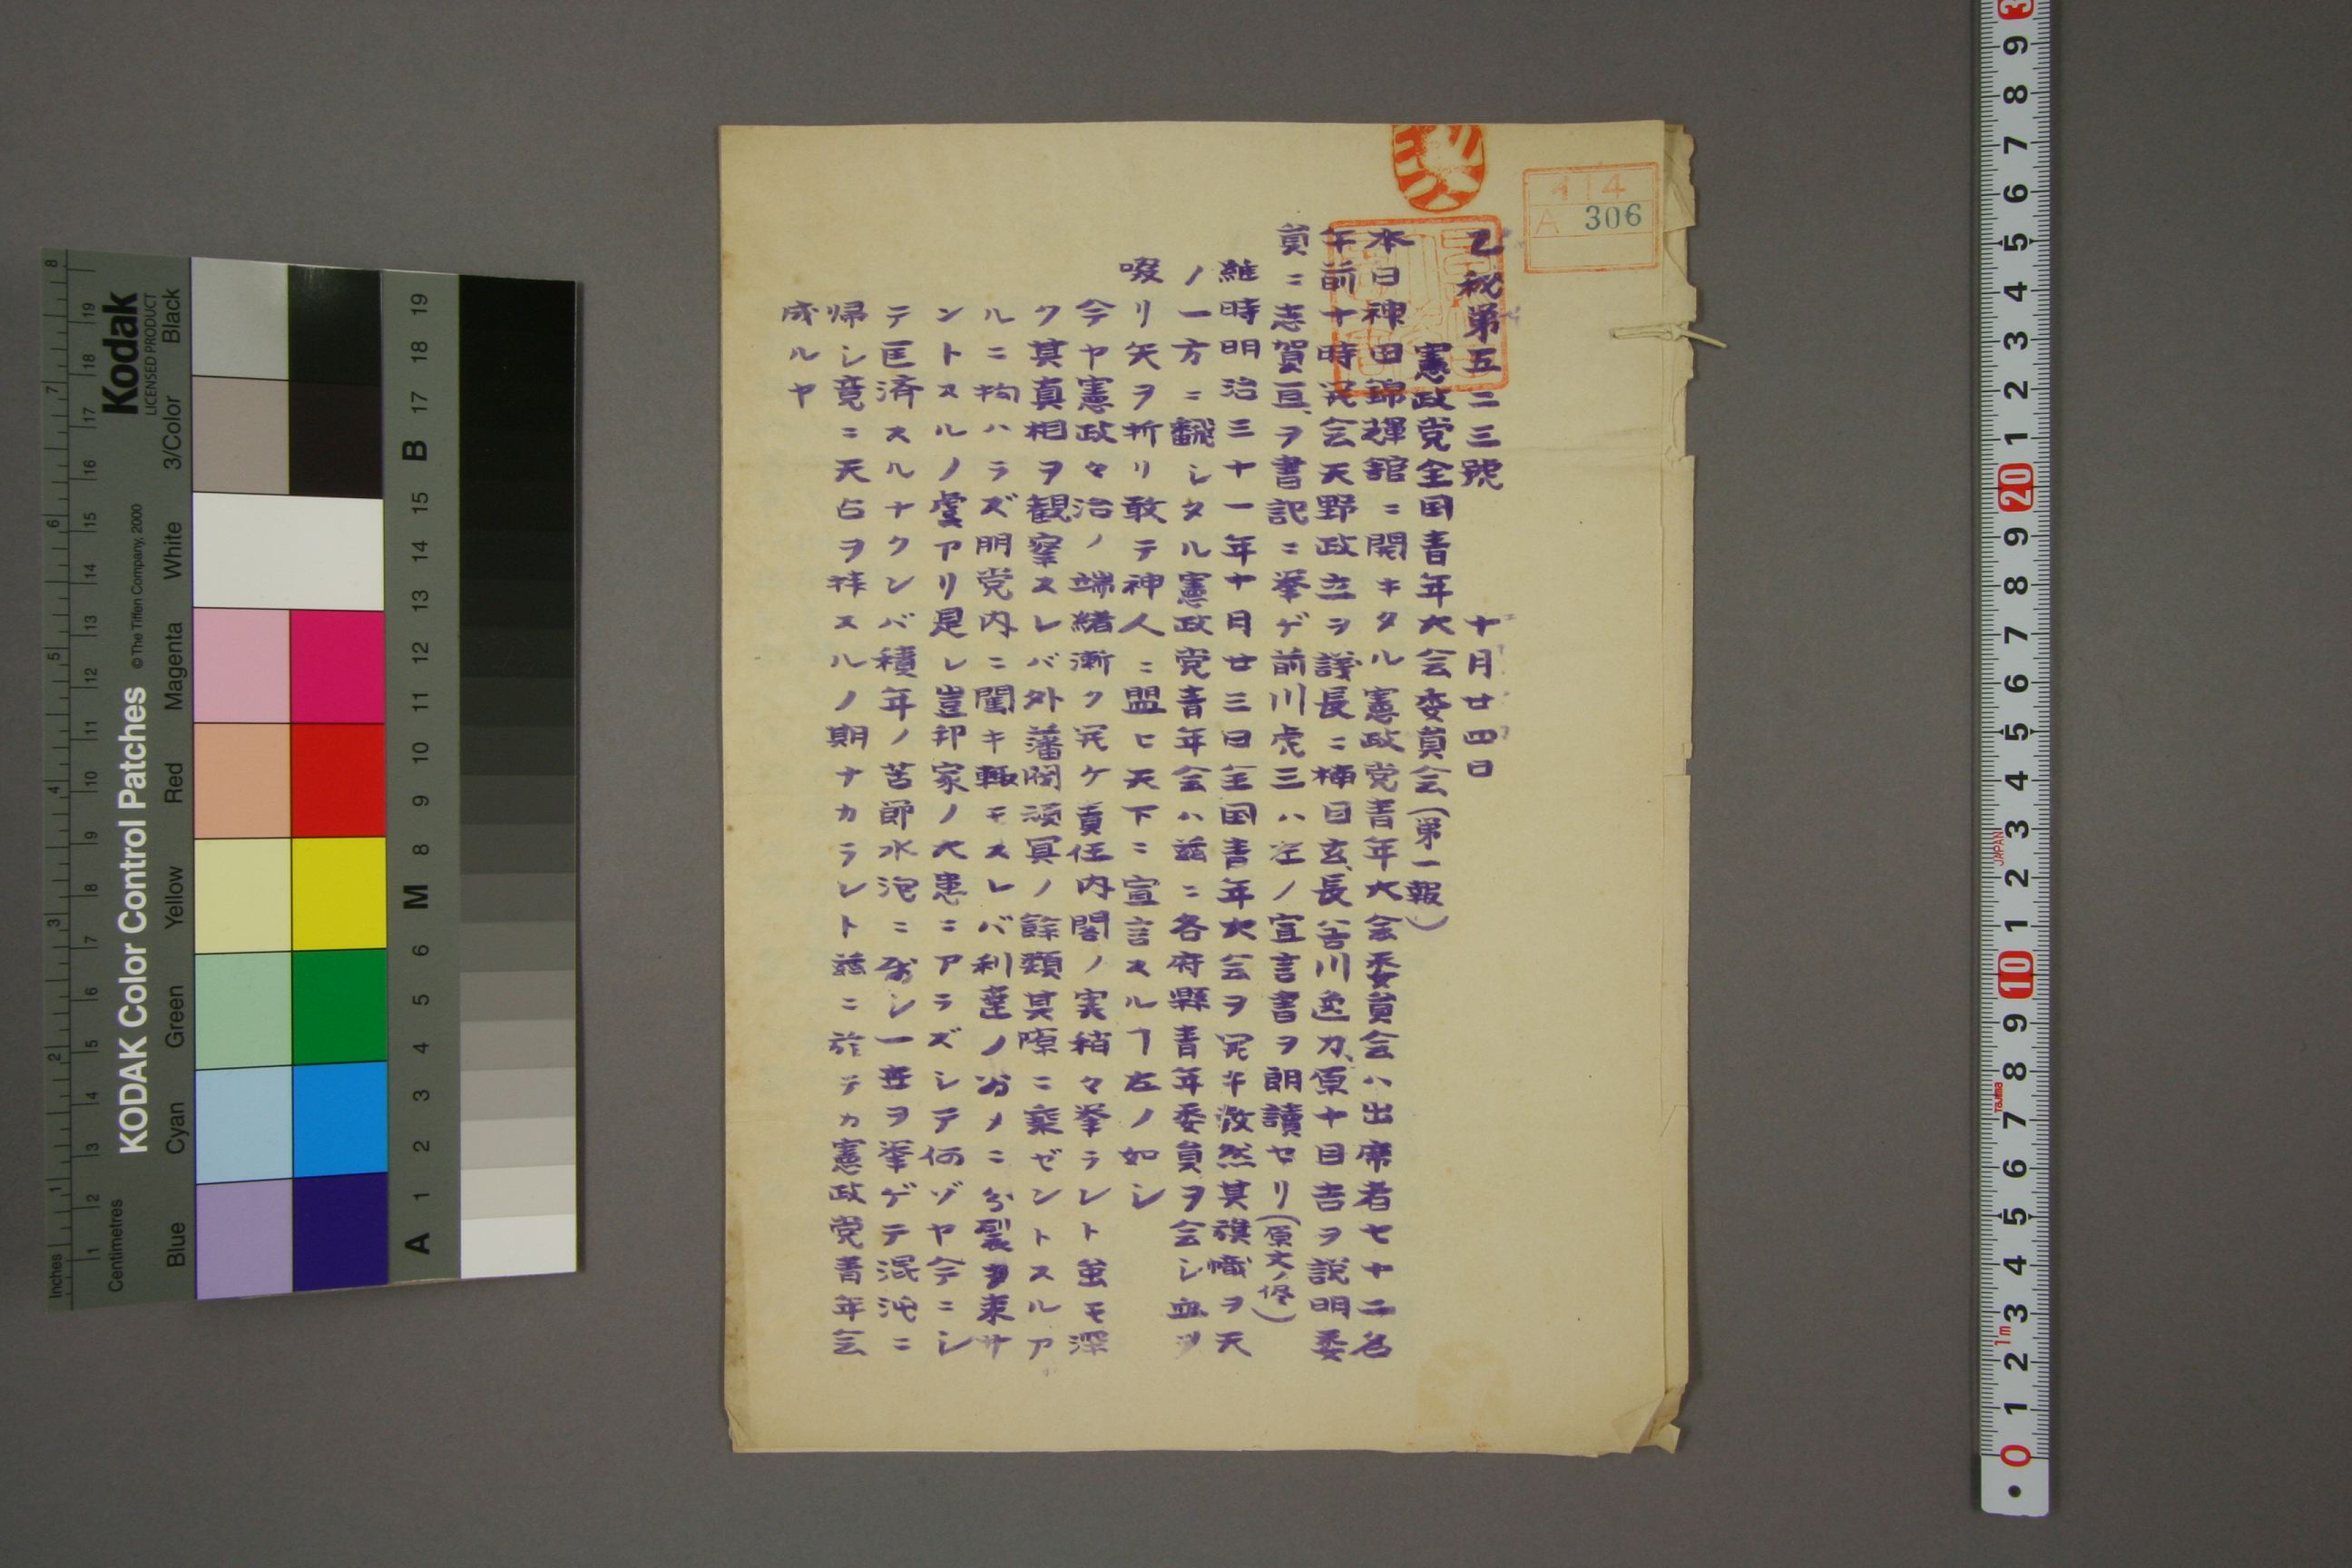 乙秘第五二三號　十月廿四日
憲政党全国青年大会委員会(第一報)
本日神田錦輝舘ニ開キタル憲政党青年大会委員会ハ出席者七十二名
午前十時開会天野政立ヲ議長ニ楠目玄、長谷川逸刀、原十目吉ヲ説明委
員ニ志賀亘、ヲ書記ニ挙ゲ前川虎三ハ左ノ宣言書ヲ朗讀セリ(原文ノ侭)
維時明治三十一年十月廿三日全国青年大会ヲ開キ滊然其旗幟ヲ天
ノ一方ニ飜シタル憲政党青年会ハ茲ニ各府縣青年委員ヲ会シ血ヲ
啜リ矢ヲ折リ敢テ神人ニ盟ヒ天下ニ宣言スルヿ左ノ如シ
今ヤ憲政々治ノ端緒漸ク開ケ責任内閣ノ実稍々挙ラレト虽モ深
ク其真相ヲ観察スレバ外藩閥頑冥ノ餘類其隙ニ乗ゼントスルア
ルニ拘ハラズ朋党内ニ鬩キ輙モスレバ利達ノ為メニ分裂ヲ来サ
ントスルノ虞アリ是レ豈邦家ノ大患ニアラズシテ何ゾヤ今ニシ
テ匡済スルナクンバ積年ノ苦節水泡ニ属シ一世ヲ挙ゲテ混沌ニ
帰シ竟ニ天占ヲ拝スルノ期ナカラレト茲ニ於テカ憲政党青年会
成ルヤ
414
A 306
KODAK Color Control Patches
© The Tiffen Company, 2000
Kodak
LICENSED PRODUCT
Inches
Centimetres
Blue Cyan Green Yellow Red Magenta White 3/Color Black
A 1 2 3 4 5 6 M 8 9 10 11 12 13 14 15 B 17 18 19
JAPAN
Tajima
1m